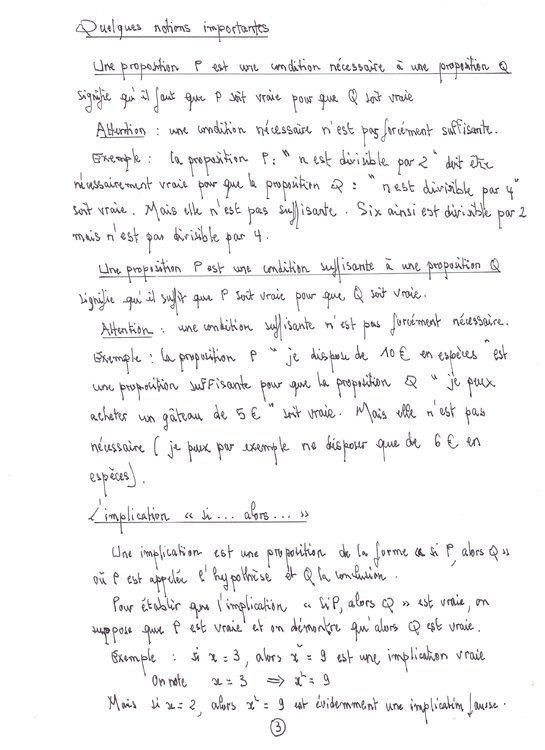 Quelques notions importantes
Une proposition P est une condition nécessaire à une proposition Q
signifie qu'il faut que P soit vraie pour que Q soit vraie
Attention : une condition nécessaire n'est pas forcément suffisante.
Exemple : la proposition P : " n est divisible par 2 " doit être
nécessairement vraie pour que la proposition Q : " n est divisible par 4 "
soit vraie. Mais elle n'est pas suffisante. Six ainsi est divisible par 2
mais n'est pas divisible par 4.
Une proposition P est une condition suffisante à une proposition Q
signifie qu'il suffit que P soit vraie pour que Q soit vraie.
Attention : une condition suffisante n'est pas forcément nécessaire.
Exemple : la proposition P " je dispose de 10 € en espèces " est
une proposition suffisante pour que la proposition Q " je peux
acheter un gâteau de 5 € " soit vraie. Mais elle n'est pas
nécessaire ( je peux par exemple ne disposer que de 6 € en
espèces).
L'implication « si... alors... »
Une implication est une proposition de la forme « si P, alors Q »
où P est appelée l'hypothèse et Q la conclusion.
Pour établir que l'implication « Si P, alors Q » est vraie, on
suppose que P est vraie et on démontre qu'alors Q est vraie.
Exemple : si x = 3, alors x² = 9 est une implication vraie
On note x = 3 ⟹ x² = 9
Mais si x = 2, alors x² = 9 est évidemment une implication fausse.
3